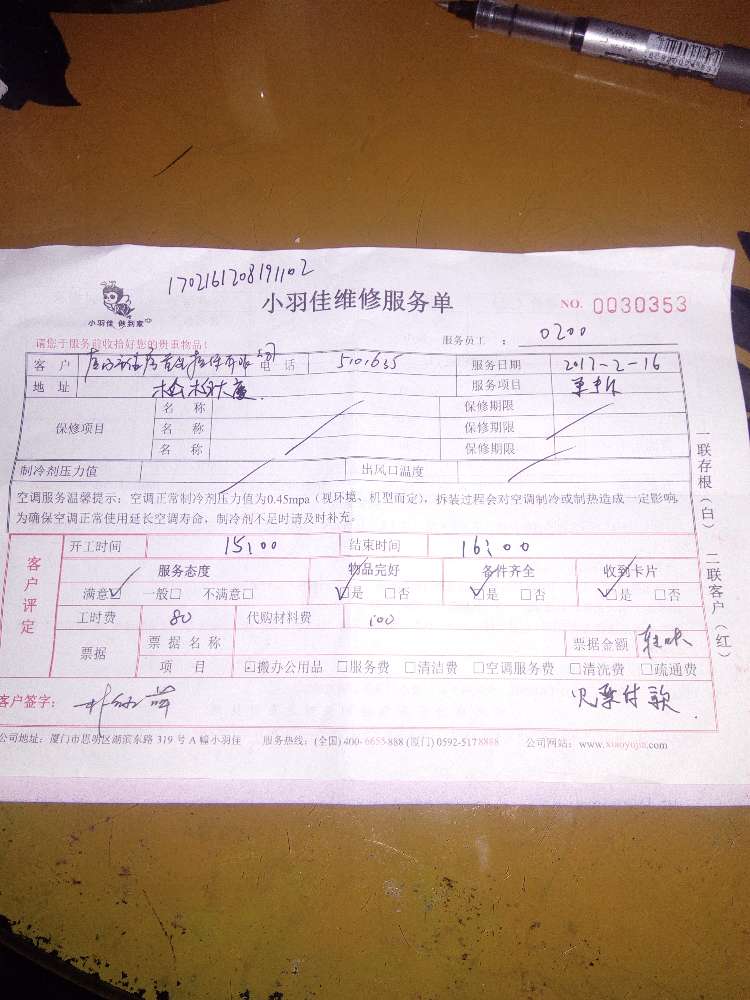 1702161208191102
小羽佳维修服务单
NO. 0030353
小羽佳 做到家
请您于服务前收拾好您的贵重物品!
服务员工 : 0200
客 户 电 话 5101635 服务日期 2017-2-16
地 址 服务项目
保修项目 名 称 保修期限
名 称 保修期限
名 称 保修期限
制冷剂压力值 出风口温度
空调服务温馨提示：空调正常制冷剂压力值为0.45mpa（视环境、机型而定），拆装过程会对空调制冷或制热造成一定影响，
为确保空调正常使用延长空调寿命，制冷剂不足时请及时补充。
客户评定
开工时间 15:00 结束时间 16:00
服务态度 物品完好 备件齐全 收到卡片
满意☑ 一般□ 不满意□ ☑是 □否 ☑是 □否 ☑是 □否
工时费 80 代购材料费 100
票据 票据名称 票据金额
项 目 ☑搬办公用品 □服务费 □清洁费 □空调服务费 □清洗费 □疏通费
客户签字： 见票付款
公司地址：厦门市思明区湖滨东路 319 号 A 幢小羽佳 服务热线：(全国) 400-6655-888 (厦门) 0592-5178888 公司网站：www.xiaoyujia.com
一联存根（白） 二联客户（红）